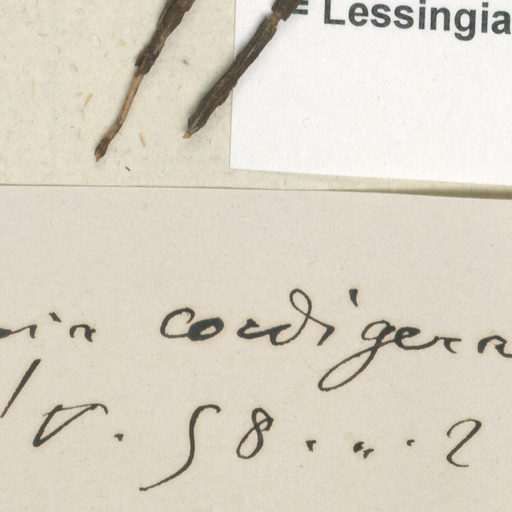 = Lessingia
cordigera
V. 58 . „ . 2